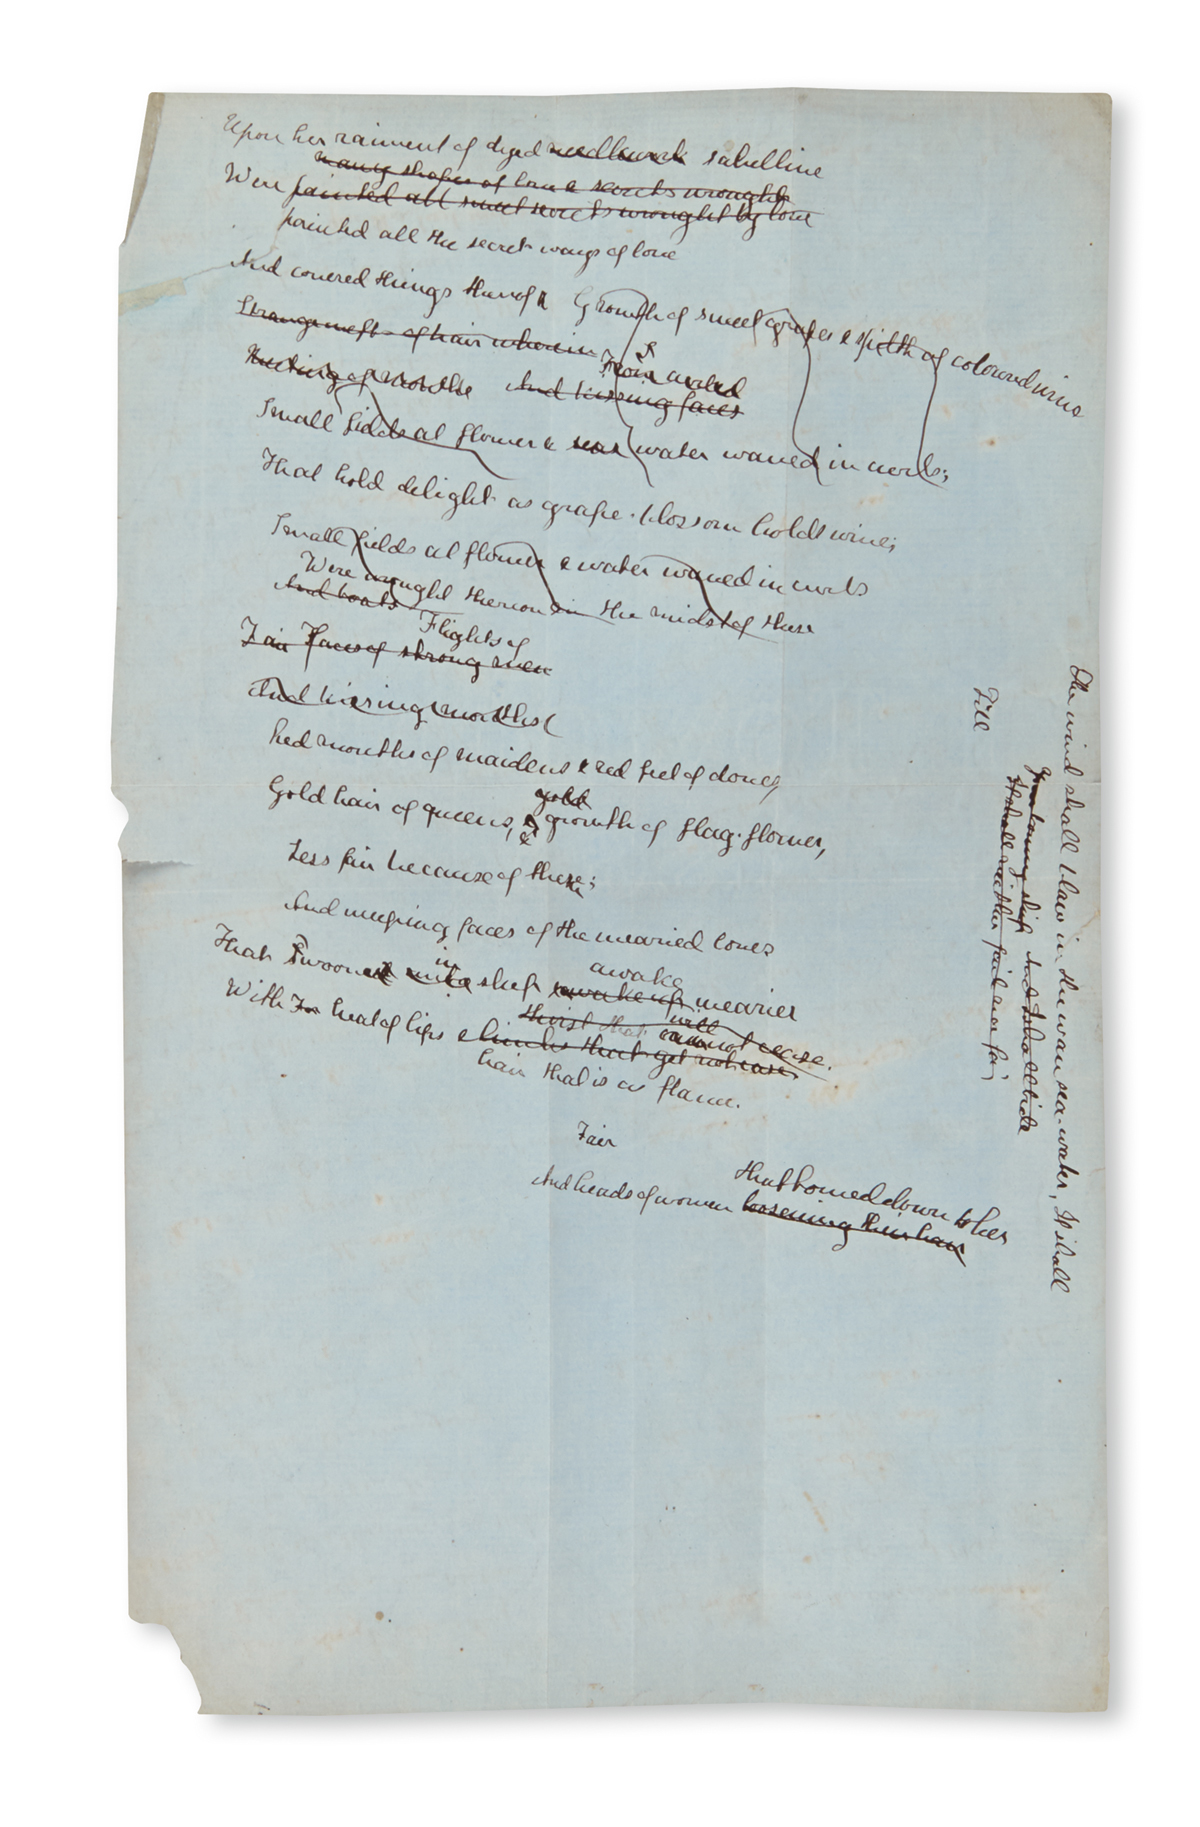 Upon her raiment of dyed needlework sabelline
many shapes of love & secrets wrought
Were painted all sweet secrets wrought by love
painted all the secret ways of love
And covered things thereof Growth of sweet grapes & spilth of coloured wine
Strange weft of hair wherein
Fair coiled
Meeting of mouths And kissing faces
Small fields at flower & water waved in curls;
That hold delight as grape-blossom holds wine;
Small fields at flower & water waved in curls
Were wrought thereon in the midst of these
And boats
Flights of
Fair Faces of strong men
And kissing mouths
Red mouths of maidens & red feet of doves,
gold
Gold hair of queens, & growth of flag-flower,
Less fair because of these;
And weeping faces of the wearied loves
in awake
That Swooned into sleep awake up wearier
thirst that will cannot cease.
With heat of lips & limbs that get not ease
hair that is as flame.
Fair
that bowed down to her
And heads of women loosening their hair
The wind shall blow in the wan sea-water, It shall
Till
And I shall bide